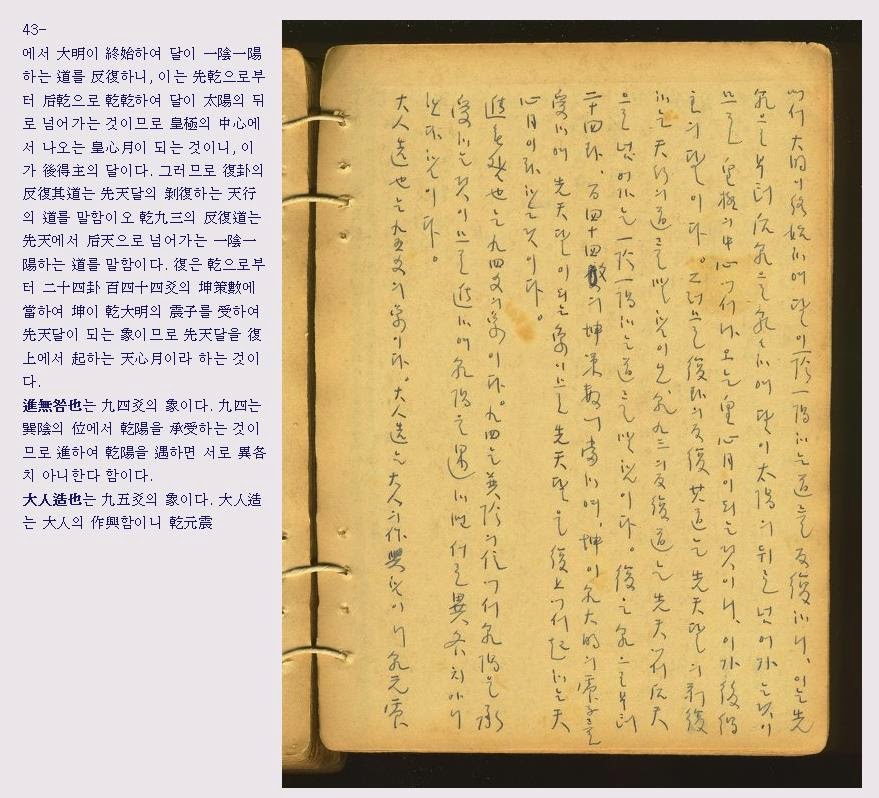 43-
에서 大明이 終始하여 달이 一陰一陽
하는 道를 反復하니, 이는 先乾으로부
터 后乾으로 乾乾하여 달이 太陽의 뒤
로 넘어가는 것이므로 皇極의 中心에
서 나오는 皇心月이 되는 것이니, 이
가 後得主의 달이다. 그러므로 復卦의
反復其道는 先天달의 剝復하는 天行
의 道를 말함이오 乾九三의 反復道는
先天에서 后天으로 넘어가는 一陰一
陽하는 道를 말함이다. 復은 乾으로부
터 二十四卦 百四十四爻의 坤策數에
當하여 坤이 乾大明의 震子를 受하여
先天달이 되는 象이므로 先天달을 復
上에서 起하는 天心月이라 하는 것이
다.
進無咎也는 九四爻의 象이다. 九四는
巽陰의 位에서 乾陽을 承受하는 것이
므로 進하여 乾陽을 遇하면 서로 異各
치 아니한다 함이다.
大人造也는 九五爻의 象이다. 大人造
는 大人의 作興함이니 乾元震
에서 大明이 終始하여 달이 一陰一陽하는 道를 反復하니, 이는 先
乾으로부터 后乾으로 乾乾하여 달이 太陽의 뒤로 넘어가는것이
므로 皇極의 中心에서 나오는 皇心月이 되는것이니, 이가 後得
主의 달이다. 그러므로 復卦의 反復其道는 先天달의 剝復
하는 天行의 道를 말함이오 乾九三의 反復道는 先天에서 后天
으로 넘어가는 一陰一陽하는 道를 말함이다. 復은 乾으로부터
二十四卦, 百四十四爻의 坤策數에 當하여, 坤이 乾大明의 震子를
受하여 先天달이 되는 象이므로 先天달을 復上에서 起하는 天
心月이라 하는것이다.
進無咎也는 九四爻의 象이다. 九四는 巽陰의 位에서 乾陽을 承
受하는것이므로 進하여 乾陽을 遇하면 서로 異各치 아니
한다 함이다.
大人造也는 九五爻의 象이다. 大人造는 大人의 作興함이니 乾元震